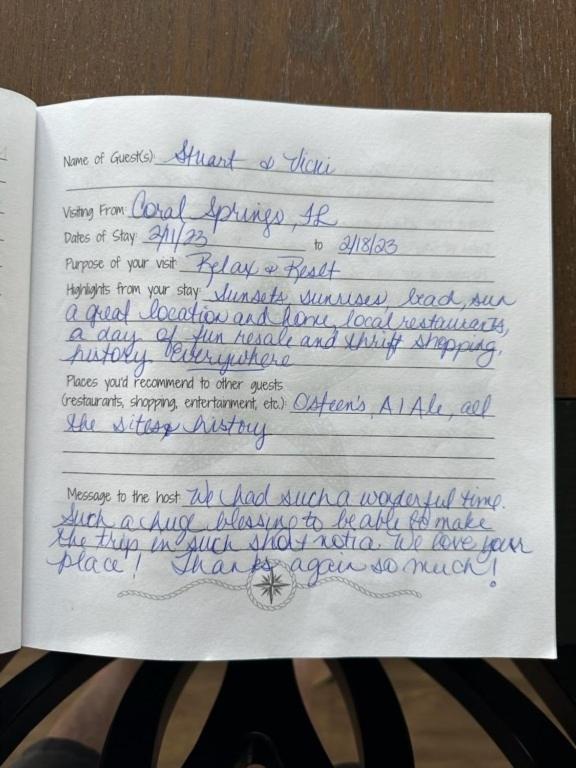 Name of Guest(s): Stuart & Vicki
Visiting From: Coral Springs, FL
Dates of Stay: 2/11/23 to 2/18/23
Purpose of your visit: Relax & Reset
Highlights from your stay: Sunsets, sunrises, read, sun
a great location and home, local restaurants,
a day of fun resale and thrift shopping,
history everywhere
Places you'd recommend to other guests
(restaurants, shopping, entertainment, etc.): Osteen's, A1Ale, all
the sites & history
Message to the host: We had such a wonderful time.
Such a huge blessing to be able to make
the trip in such short notice. We love your
place! Thanks again so much!